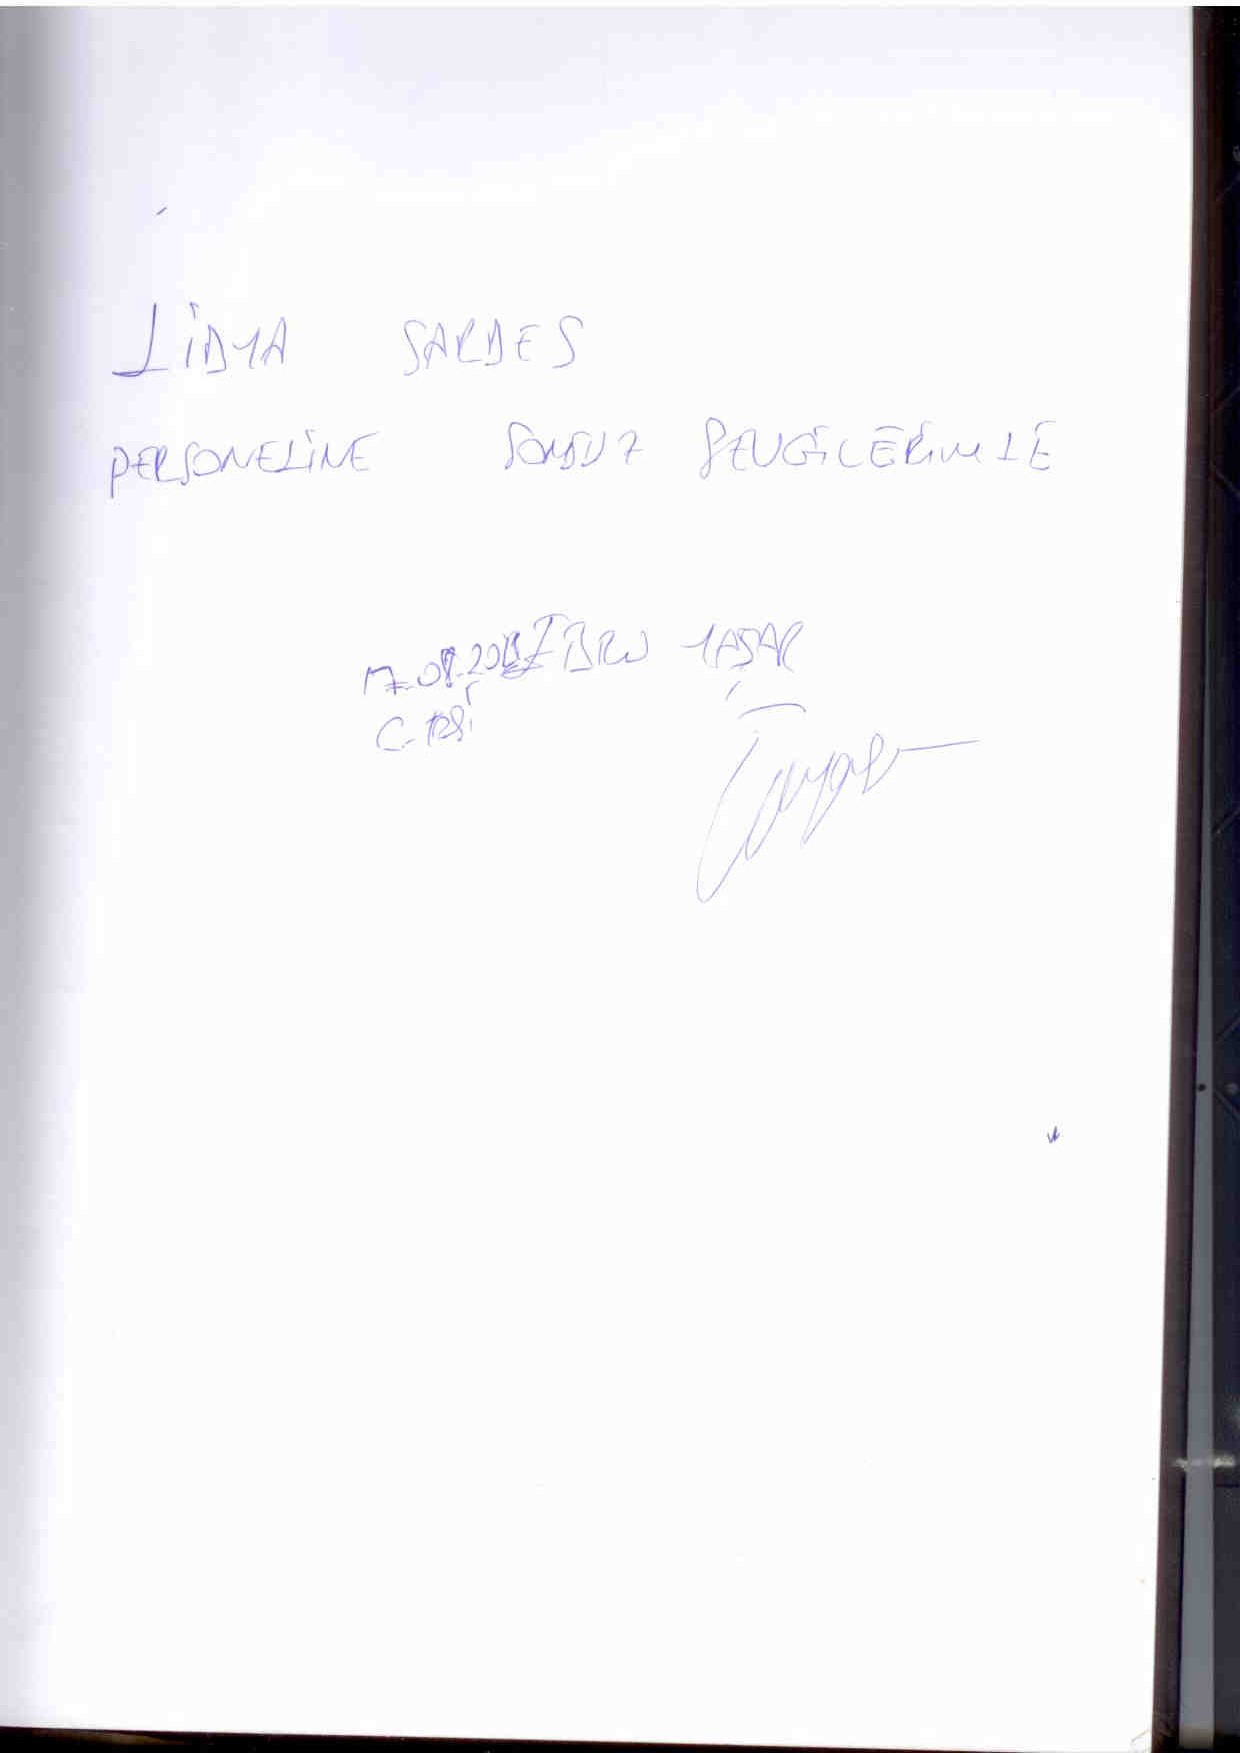 LİDYA SARDES
PERSONELİNE SONSUZ SEVGİLERİMLE
EBRU YAŞAR
C.TESİ